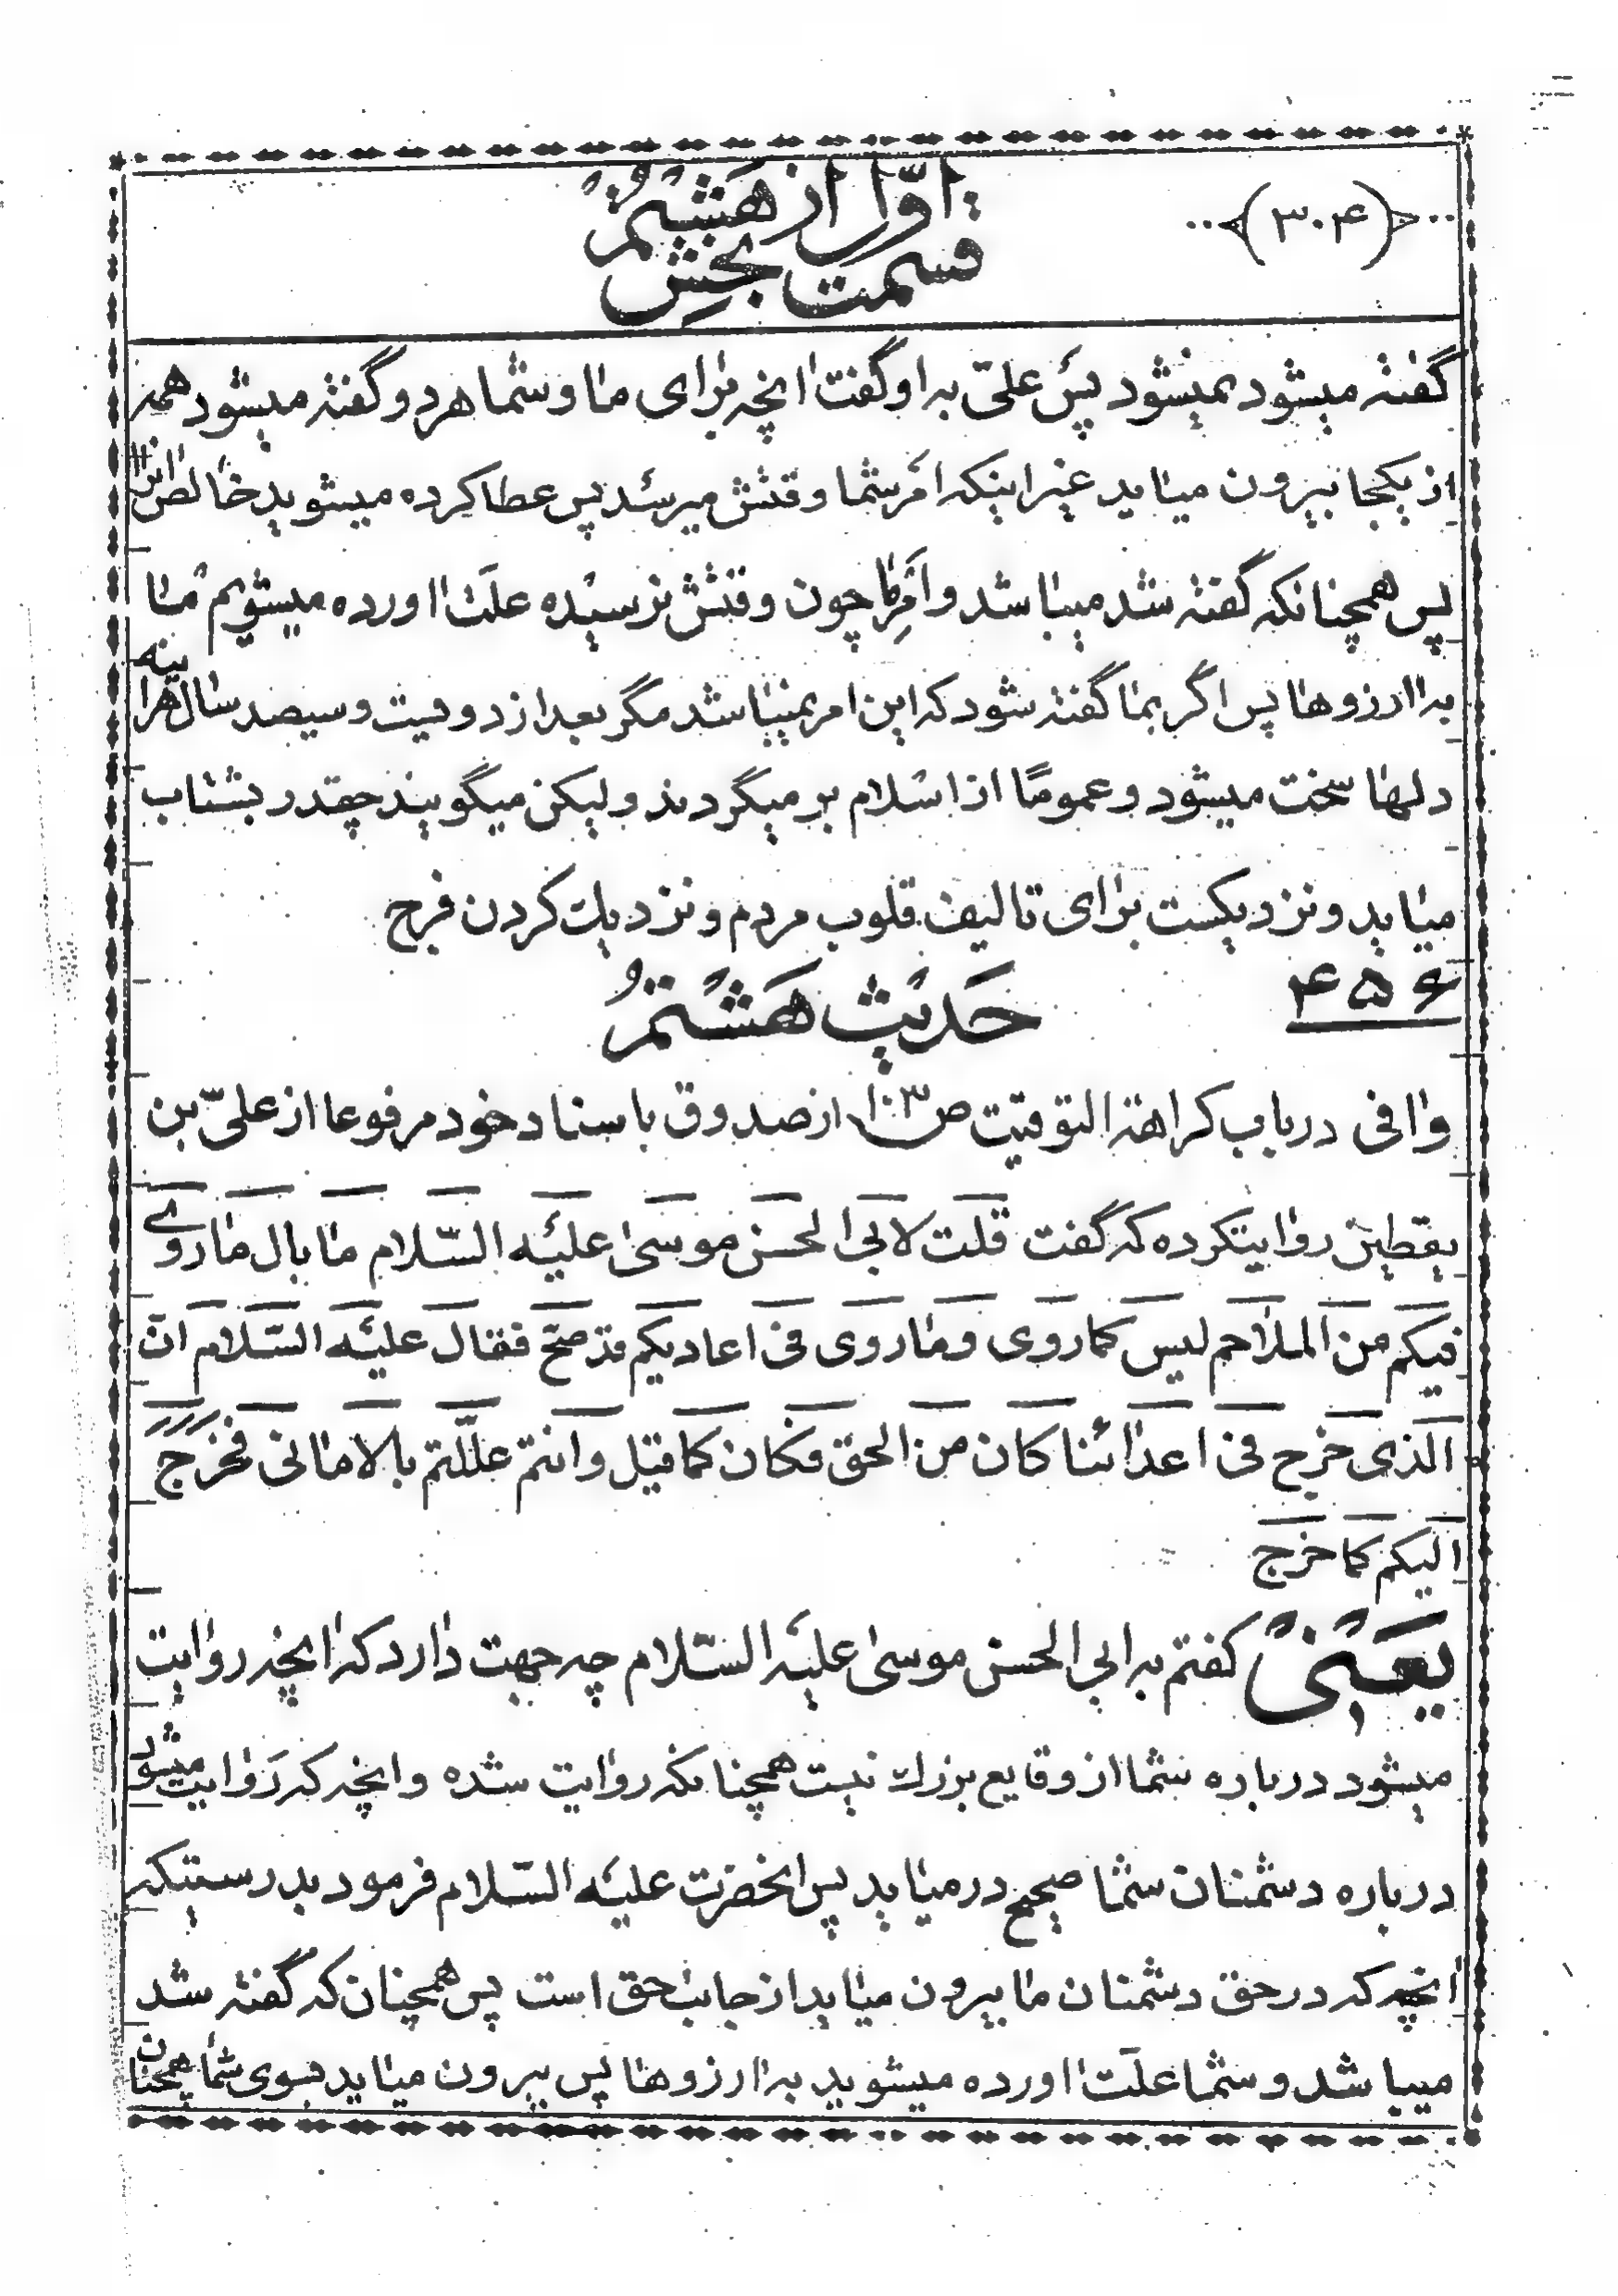 (۳۰۴)
قسمت اوّل از بخش هشتم
گفته میشود نمیشود پس علی به او گفت انچه برای ما و شما هر دو گفته میشود همه
از یکجا بیرون میاید غیر اینکه امر شما وقتش میرسد پس عطا کرده میشوید خالص انرا
پس همچنانکه گفته شد میباشد و امر ما چون وقتش نرسیده علت اورده میشویم ما
به ارزوها پس اگر بما گفته شود که این امر نمیباشد مگر بعد از دویست و سیصد سال هراینه
دلها سخت میشود و عموما از اسلام بر میگردند ولیکن میگویند چقدر بشتاب
میاید و نزدیکست برای تالیف قلوب مردم و نزدیک کردن فرج
۴۵۶ حدیث هشتم
وافی در باب کراهة التوقیت ص۱۰۳ از صدوق باسناد خود مرفوعا از علیّ بن
یقطین روایتکرده که گفت قلت لابی الحسن موسی علیه السّلام ما بال ما روی
فیکم من الملاحم لیس کما روی وما روی فی اعادیکم قد صحّ فقال علیه السّلام انّ
الذی خرج فی اعدائنا کان من الحق فکان کما قیل وانتم علّلتم بالامانی فخرج
الیکم کما خرج
یعنی گفتم به ابی الحسن موسی علیه السّلام چه جهت دارد که انچه روایت
میشود درباره شما از وقایع بزرک نیست همچنانکه روایت شده وانچه که روایت میشود
درباره دشمنان شما صحیح در میاید پس انحضرت علیه السّلام فرمود بدرستیکه
انچه که در حق دشمنان ما بیرون میاید از جانب حق است پس همچنان که گفته شد
میباشد و شما علّت اورده میشوید به ارزوها پس بیرون میاید بسوی شما همچنان